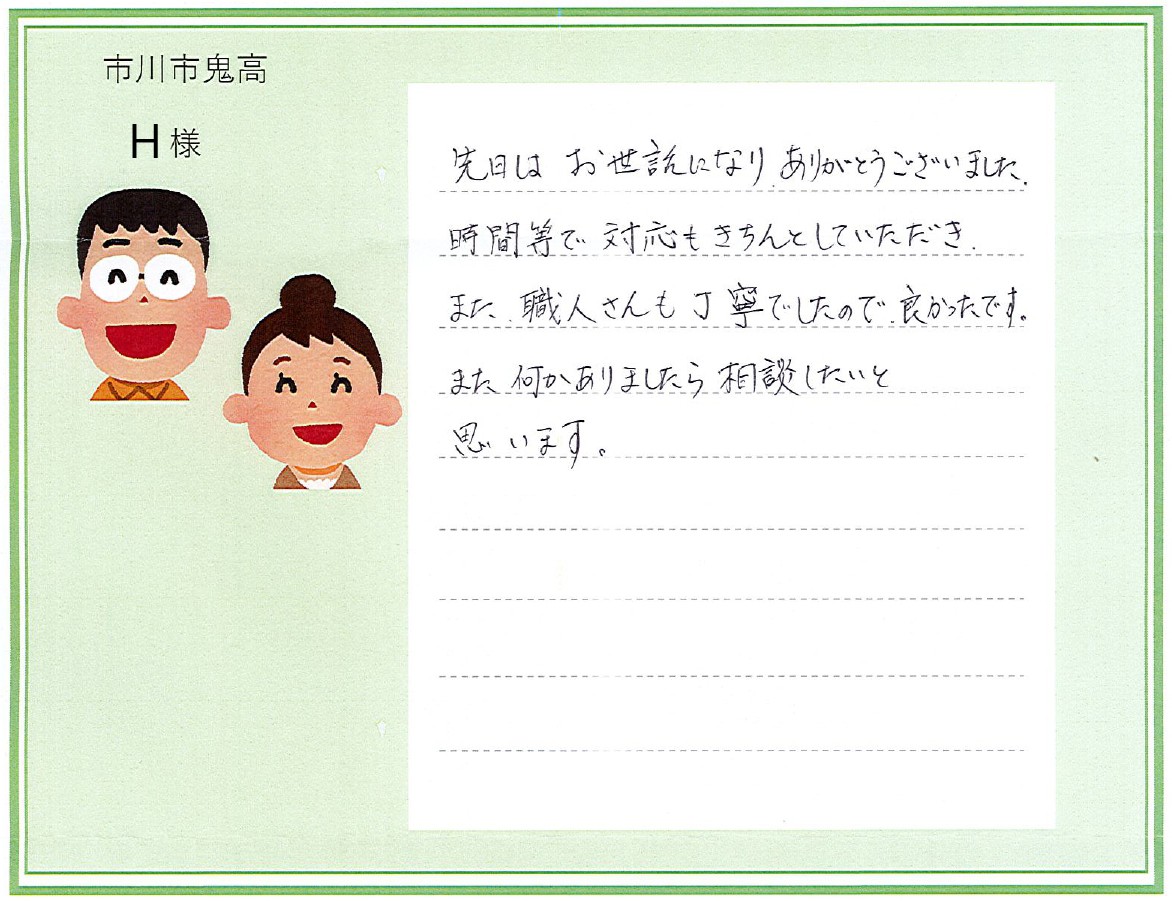 市川市鬼高
H様
先日は お世話になり ありがとうございました.
時間等で 対応もきちんとしていただき.
また. 職人さんも 丁寧でしたので. 良かったです。
また 何かありましたら 相談したいと
思います。